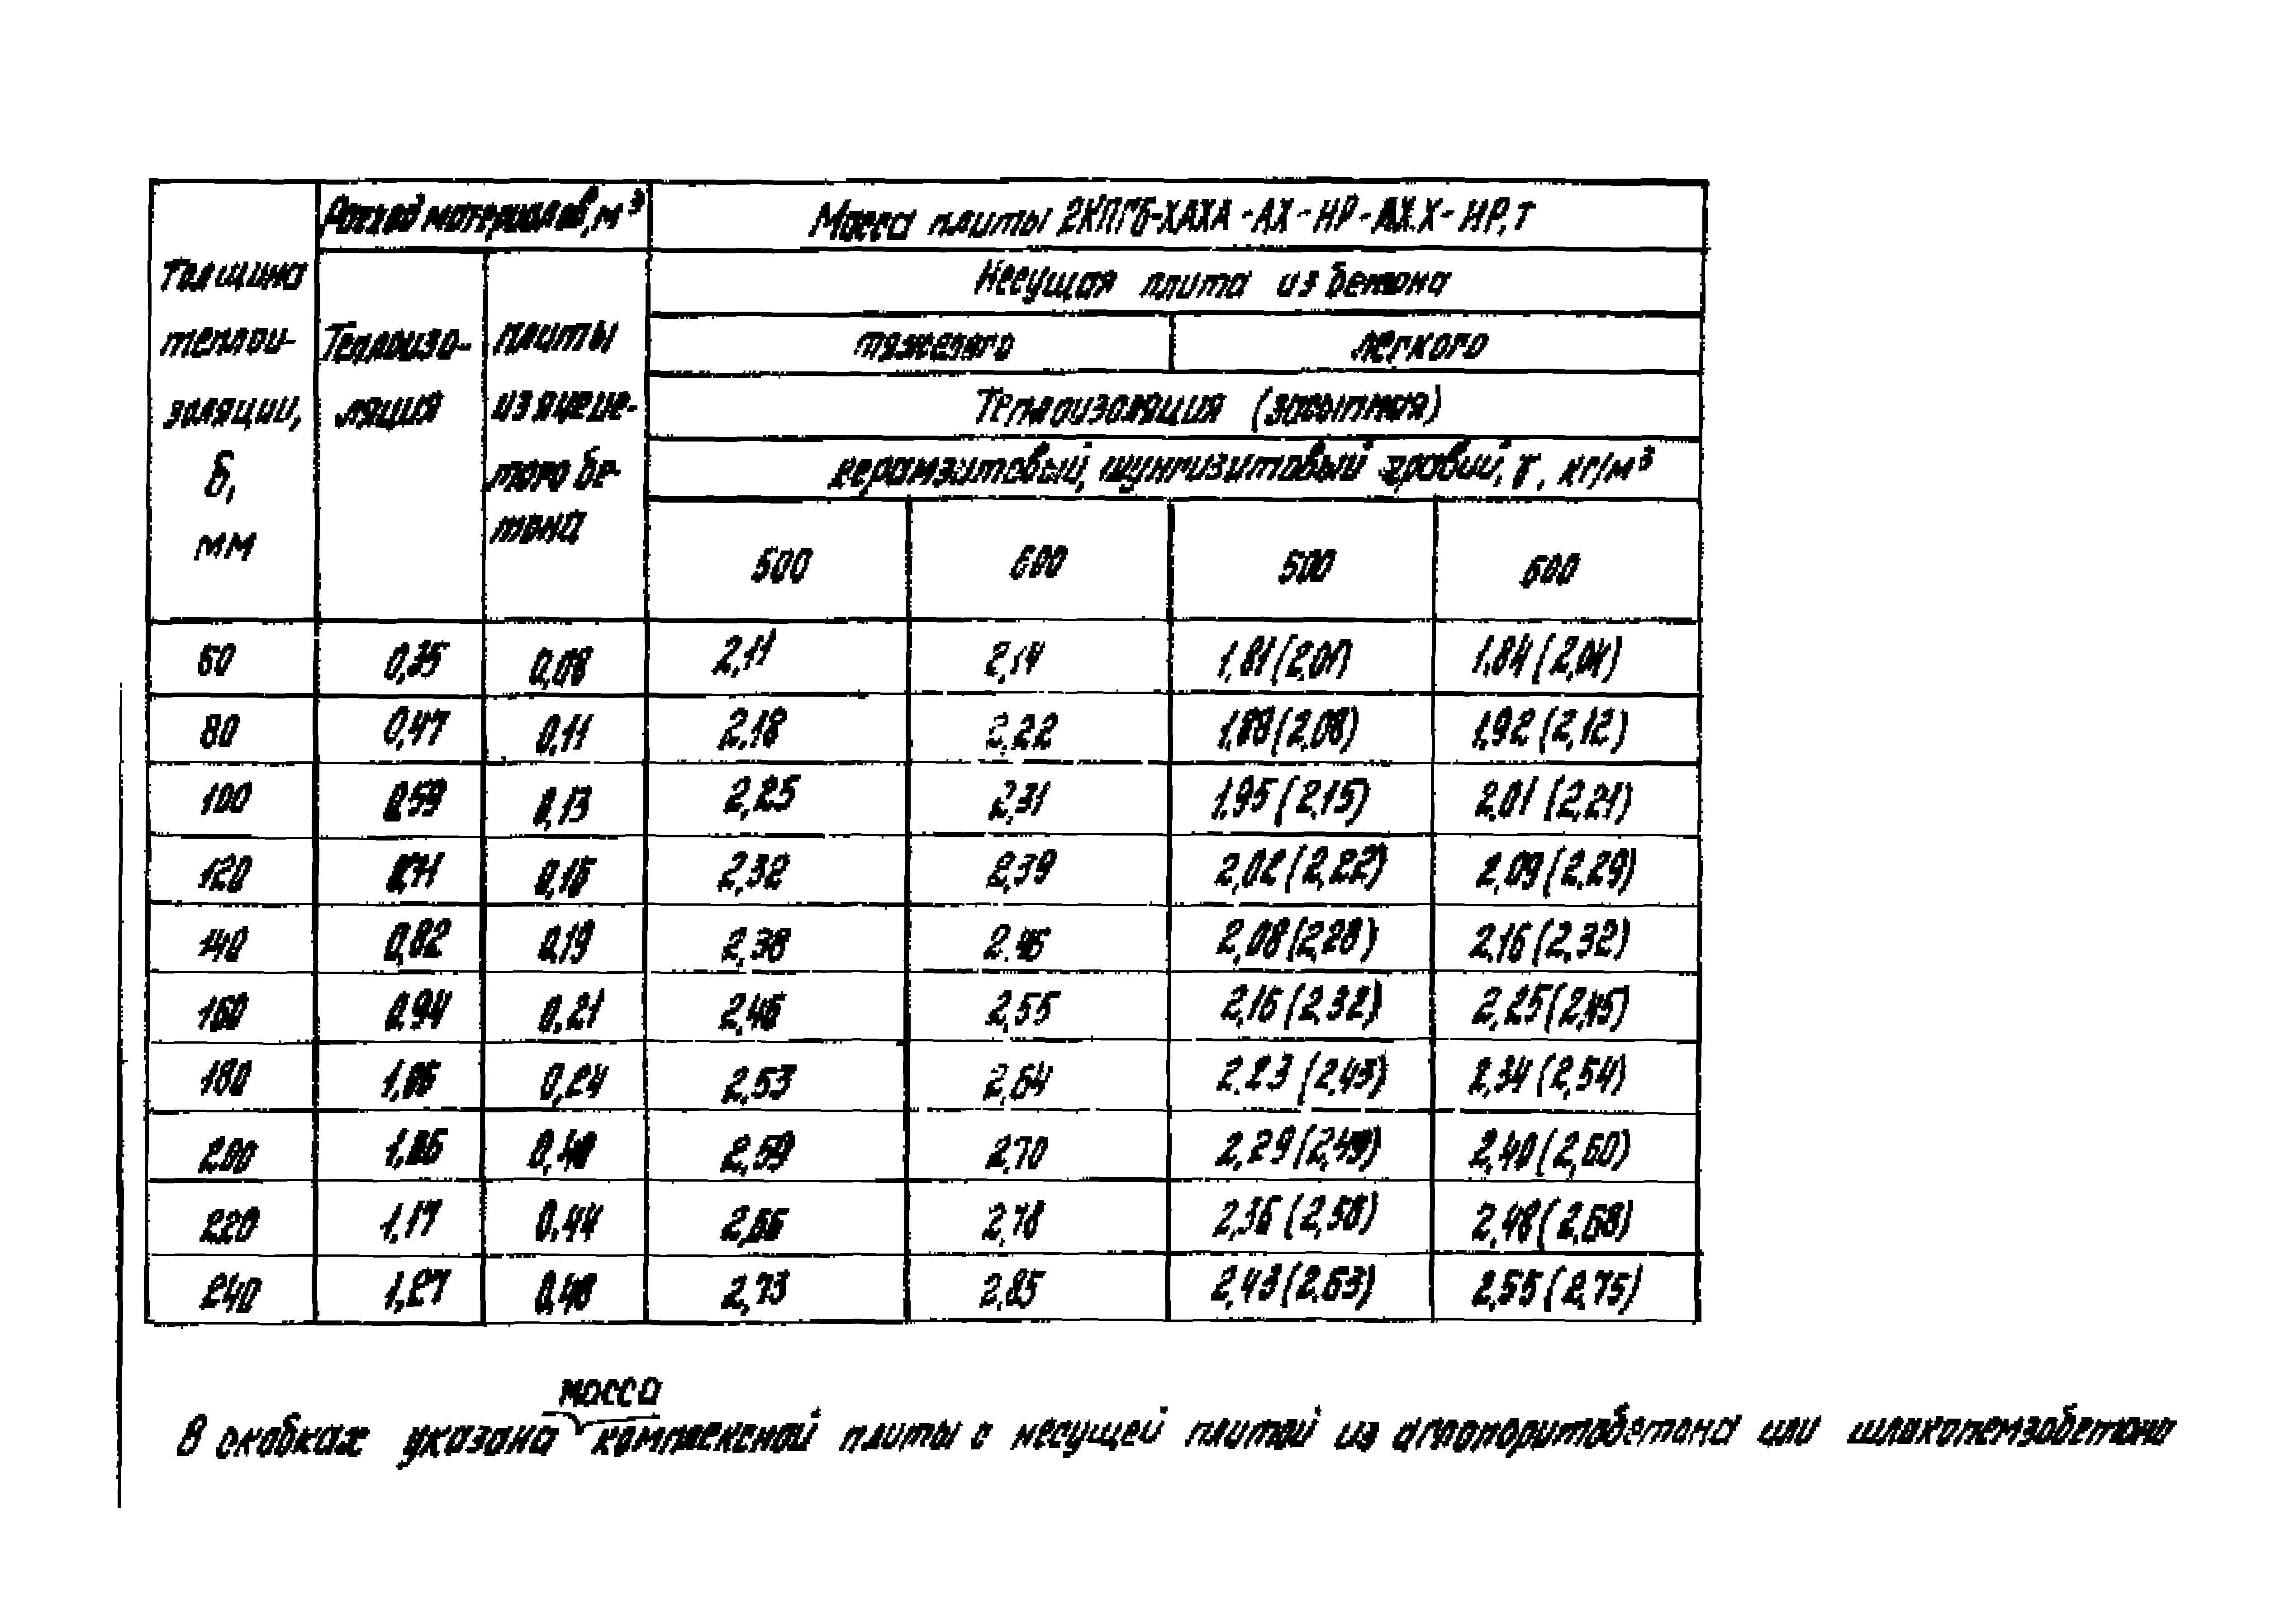 Расход материалов, м³
Масса плиты 2КПГ6-ХАХА-АХ-НР-АХ.Х-НР, т
Толщина
теплои-
золяции,
δ,
мм
Теплоизо-
ляция
плиты
из ячеис-
того бе-
тона
Несущая плита из бетона
тяжелого легкого
Теплоизоляция (засыпная)
керамзитовый, шунгизитовый гравий, γ, кг/м³
500 600 500 600
60 0,35 0,08 2,11 2,14 1,81(2,01) 1,84(2,04)
80 0,47 0,11 2,18 2,22 1,88(2,08) 1,92(2,12)
100 0,59 0,13 2,25 2,31 1,95(2,15) 2,01(2,21)
120 0,71 2,32 2,39 2,02(2,22) 2,09(2,29)
140 0,82 0,19 2,38 2,46 2,08(2,28) 2,16(2,32)
160 0,94 0,21 2,46 2,55 2,16(2,32) 2,25(2,45)
180 1,06 0,24 2,53 2,64 2,23(2,43) 2,34(2,54)
200 0,40 2,59 2,70 2,29(2,49) 2,40(2,60)
220 1,17 0,44 2,66 2,78 2,36(2,58) 2,48(2,68)
240 1,27 0,48 2,73 2,85 2,43(2,63) 2,55(2,75)
масса
В скобках указана комплексной плиты с несущей плитой из аглопоритобетона или шлакопемзобетона